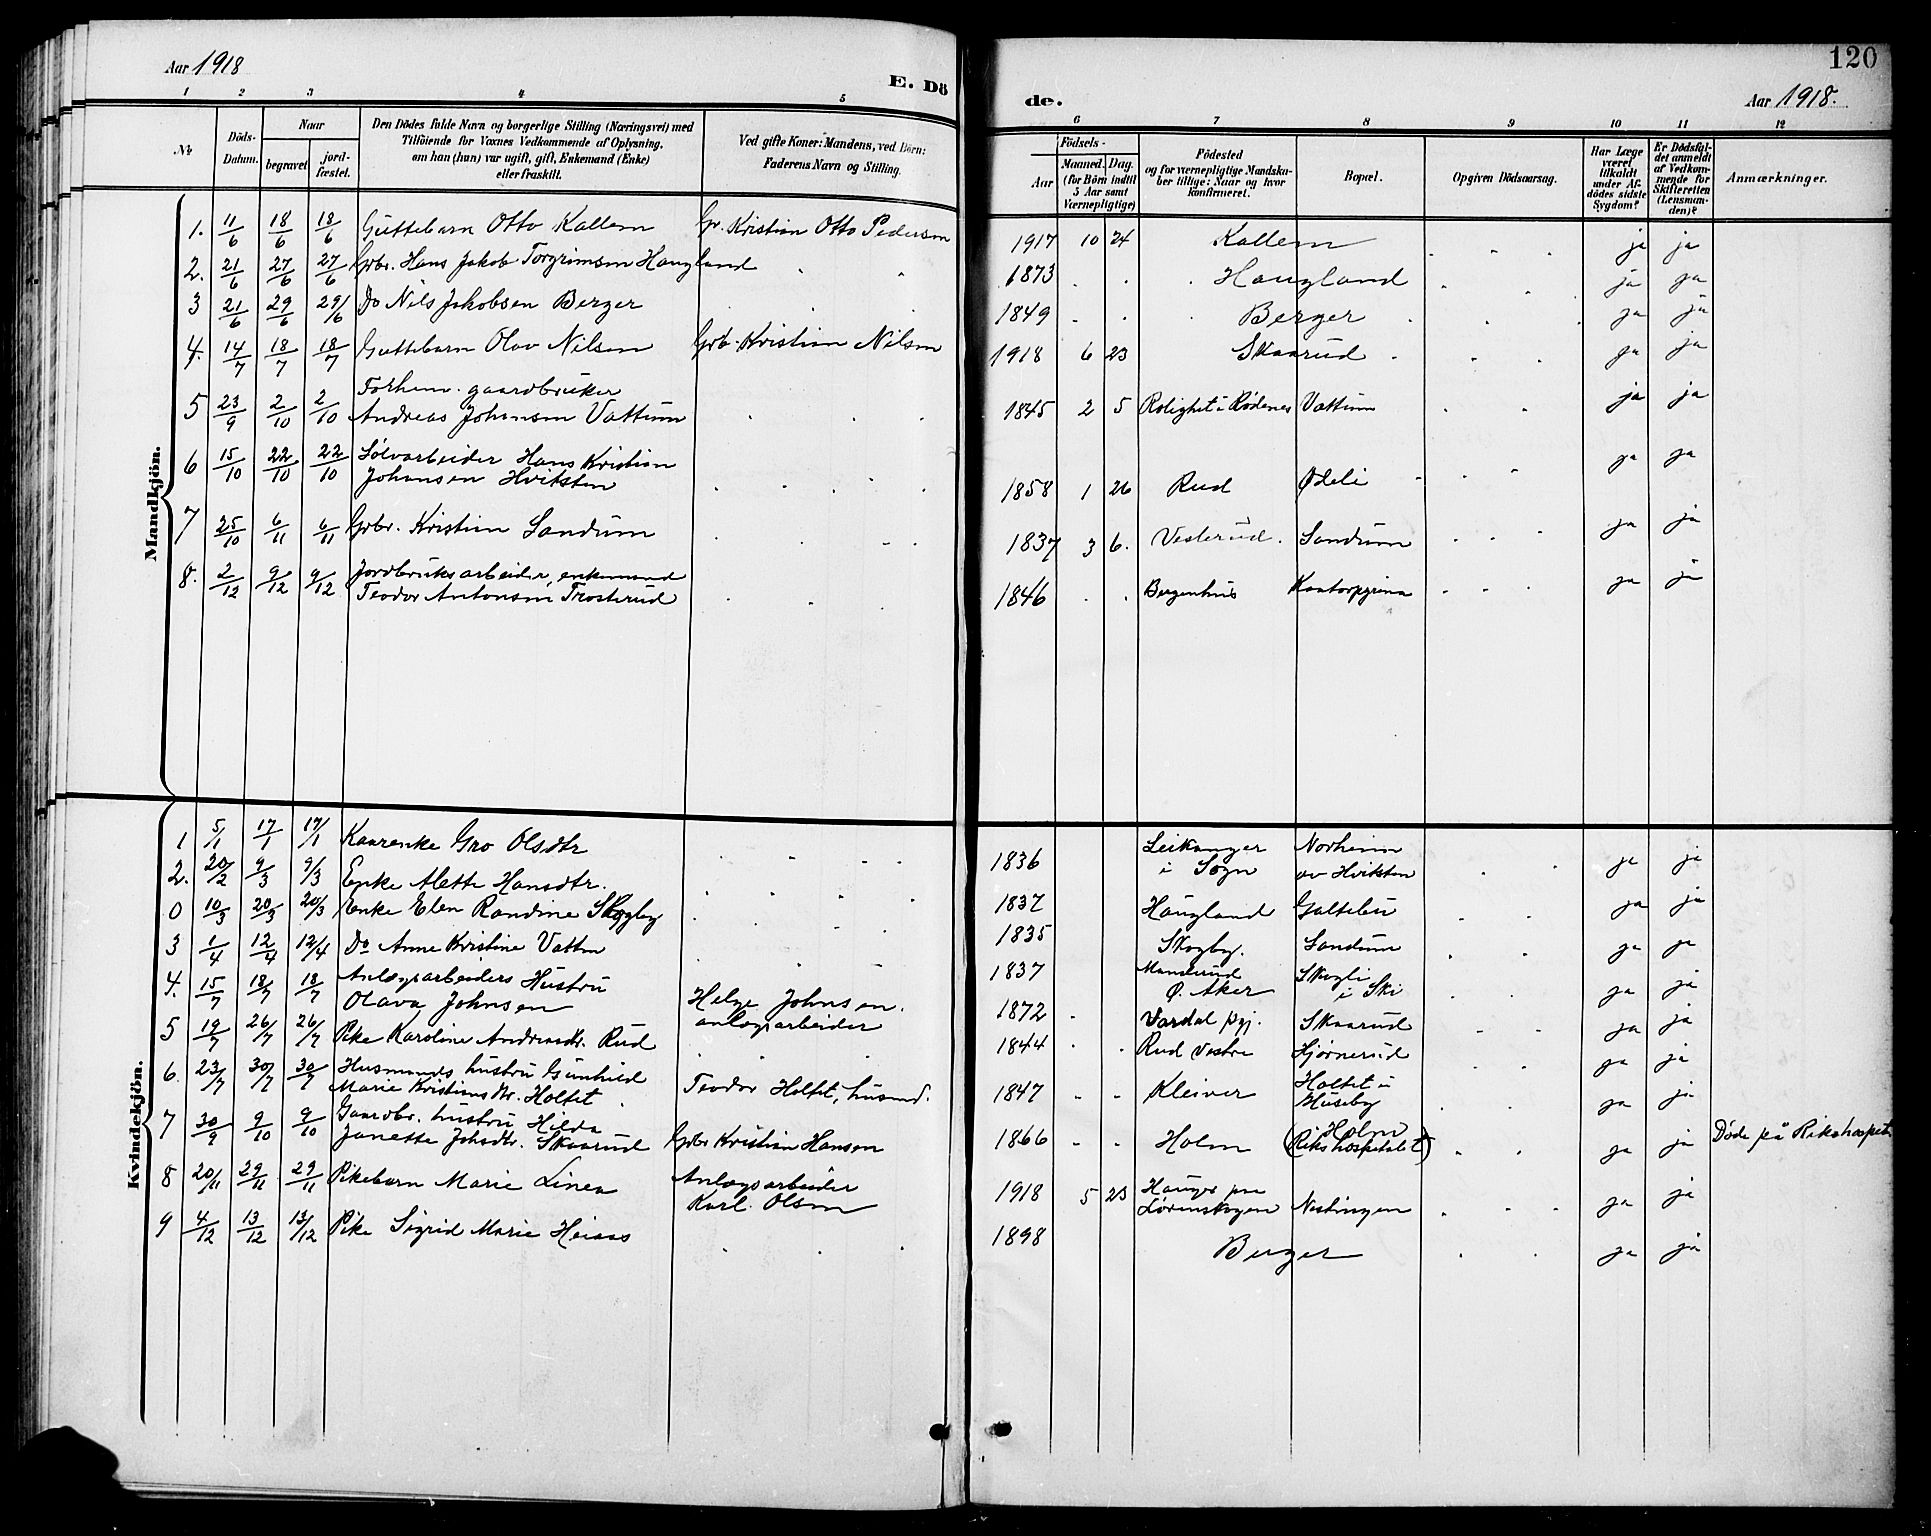 Aar 1918
E. Dö
1 2 3 4 5
Nr.
Döds-Datum.
Naar
begravet
jord-fæstet.
Den Dödes fulde Navn og borgerlige Stilling (Næringsvei) med
Tilföiende for Voxnes Vedkommende af Oplysning,
om han (hun) var ugift, gift, Enkemand (Enke)
eller fraskilt.
Ved gifte Koner: Mandens, ved Börn:
Faderens Navn og Stilling.
Mandkjön.
1. 11/6 18/6 18/6 Guttebarn Otto Kallem Gr. Kristian Otto Pedersen
2. 21/6 27/6 27/6 Grbr. Hans Jakob Torgrimsen Haugland
3 21/6 29/6 29/6 Do Nils Jakobsen Berger
4. 14/7 18/7 18/7 Guttebarn Olav Nilsen Grb. Kristian Nilsen
5 23/9 2/10 2/10 Forhen. gaardbruker
Andreas Johansen Vattum
6 15/10 22/10 22/10 Sölvarbeider Hans Kristian
Johansen Hvitsten
7 25/10 6/11 6/11 Grbr. Kristian Sandum
8. 2/12 9/12 9/12 Jordbruksarbeider, enkemand
Teodor Antonsen Trosterud
Kvindekjön.
1 5/1 17/1 17/1 Kaarenke Gro Olsdtr
2. 20/2 9/3 9/3 Enke Alette Hansdtr.
0 10/3 20/3 20/3 Enke Elen Randine Skogby
3 1/4 12/4 12/4 Do Anne Kristine Vatten
4. 15/7 18/7 18/7 Anlægsarbeiders Hustru
Olava Johnsen Helge Johnsen.
anlægsarbeider
5 19/7 26/7 26/7 Pike Karoline Andreasdtr. Rud
6 23/7 30/7 30/7 Husmands hustru Gunhild
Marie Kristiansdtr. Holtet Teodor Holtet, husmd.
7 30/9 9/10 9/10 Gaardbr. hustru Hilda
Janette Johsdtr. Skaarud Grbr Kristian Hansen
8 20/11 29/11 29/11 Pikebarn Marie Linea Anlægsarbeider
Karl Olsen
9 4/12 13/12 13/12 Pike Sigrid Marie Heiaas
120
de.
Aar 1918.
6 7 8 9 10 11 12
Födsels-
Aar
Maaned. Dag.
(for Börn indtil
5 Aar samt
Værnepligtige)
Födested
og for værnepligtige Mandska-
ber tillige: Naar og hvor
konfirmeret.
Bopæl.
Opgiven Dödsaarsag.
Har Læge
været
tilkaldt
under Af-
dödes sidste
Sygdom?
Er Dödsfal-
det anmeldt
af Vedkom-
mende for
Skifteretten
(Lensman-
den)?
Anmærkninger.
1917 10 24 Kallem ja ja
1873 Haugland ja ja
1849 Berger ja ja
1918 6 23 Skaarud ja ja
1845 2 5 Rolighet i Rødenes Vattum ja ja
1858 1 26 Rud Ødeli ja ja
1837 3 6. Vesterud. Sandum ja ja
1846 Bergenhus ja ja
1836 Leikanger
i Sogn Norheim
av Hvitsten ja ja
1837 Haugland Galtebu ja ja
1835 Skogby. Sandum ja ja
1837 Ø. Aker Skogli
i Ski ja ja
1872 Vardal pgj. Skaarud ja ja
1844 Rud Vestre Hjørnerud ja ja
1847 Kleiver Holtet u
Huseby ja ja
1866 Holm Holm
(Rikshospitalet) ja ja Døde på Rikshospit.
1918 5 23 Hauger paa
Lørenskogen ja ja
1898 Berger ja ja